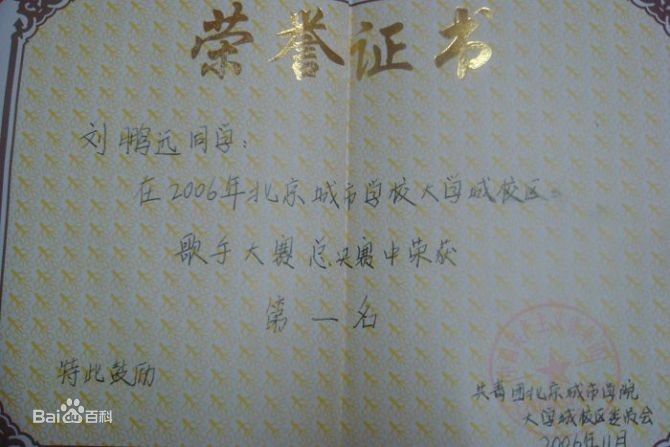 荣誉证书
刘鹏远同学：
在2006年北京城市学校大学城校区
歌手大赛总决赛中荣获
第一名
特此鼓励
共青团北京城市学院
大学城校区委员会
2006年11月
Baidu百科